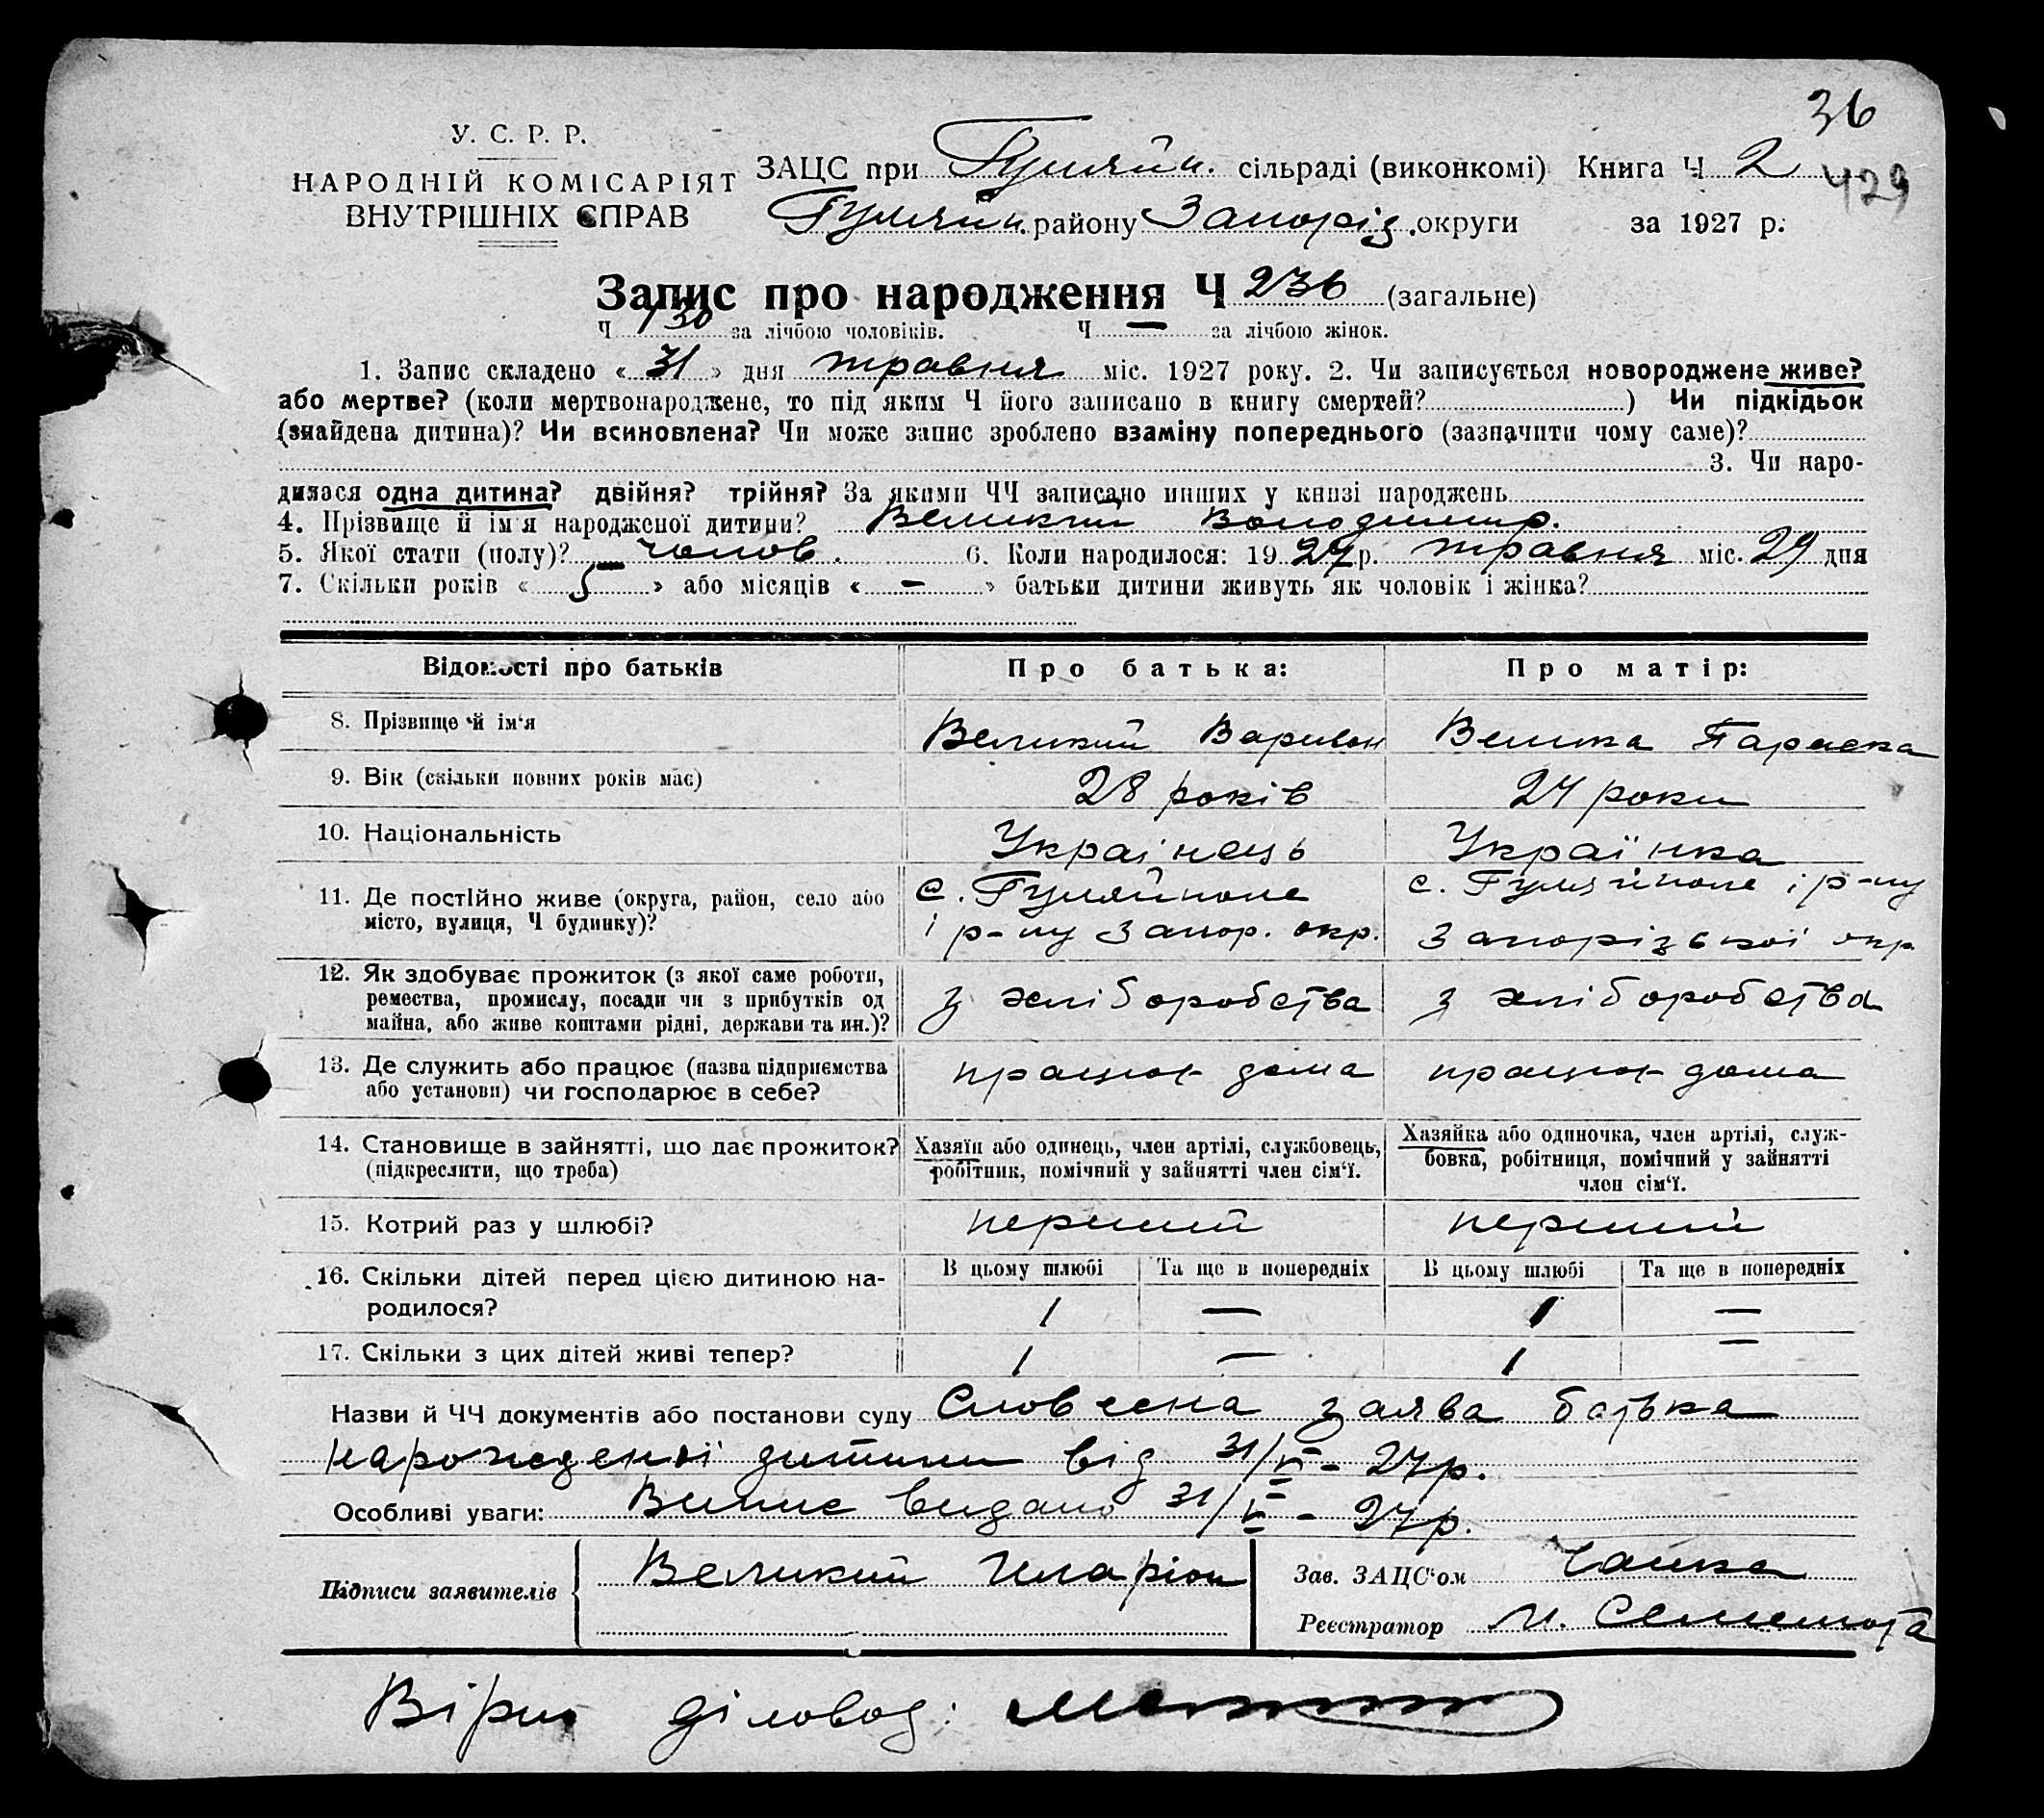 36
429
У. С. Р. Р.
НАРОДНІЙ КОМІСАРІЯТ
ВНУТРІШНІХ СПРАВ
ЗАЦС при Гуляйп. сільраді (виконкомі) Книга Ч 2
Гуляйп. району Запоріз. округи за 1927 р.
Запис про народження Ч 236 (загальне)
Ч 130 за лічбою чоловіків. Ч — за лічбою жінок.
1. Запис складено «31» дня травня міс. 1927 року. 2. Чи записується новороджене живе?
або мертве? (коли мертвонароджене, то під яким Ч його записано в книгу смертей?) Чи підкідьок
(знайдена дитина)? Чи всиновлена? Чи може запис зроблено взаміну попереднього (зазначити чому саме)?
3. Чи наро-
дилася одна дитина? двійня? трійня? За якими ЧЧ записано инших у книзі народжень
4. Прізвище й ім'я народженої дитини? Великий Володимир.
5. Якої стати (полу)? чолов. 6. Коли народилося: 1927 р. травня міс. 29 дня
7. Скільки років «5» або місяців «-» батьки дитини живуть як чоловік і жінка?
Відомості про батьків Про батька: Про матір:
8. Прізвище й ім'я Великий Варивон Велика Параска
9. Вік (скільки повних років має) 28 років 24 роки
10. Національність Украінець Українка
11. Де постійно живе (округа, район, село або
місто, вулиця, Ч будинку)?
с. Гуляйполе
і р-ну Запор. окр.
с. Гуляйполе і р-ну
Запорізької окр.
12. Як здобуває прожиток (з якої саме роботи,
ремества, промислу, посади чи з прибутків од
майна, або живе коштами рідні, держави та ин.)?
з хліборобства з хліборобства
13. Де служить або працює (назва підприємства
або установи) чи господарює в себе?
працює дома працює дома
14. Становище в зайнятті, що дає прожиток?
(підкреслити, що треба)
Хазяїн або одинець, член артілі, службовець,
робітник, помічний у зайнятті член сім'ї.
Хазяйка або одиночка, член артілі, служ-
бовка, робітниця, помічний у зайнятті
член сім'ї.
15. Котрий раз у шлюбі? перший перший
16. Скільки дітей перед цією дитиною на-
родилося?
В цьому шлюбі Та ще в попередніх В цьому шлюбі Та ще в попередніх
1 — 1 —
17. Скільки з цих дітей живі тепер? 1 — 1 —
Назви й ЧЧ документів або постанови суду Словесна заява батька
народженні дитини від 31/V - 27р.
Особливі уваги: Випис видано 31/V - 27р.
Підписи заявителів Великий Иларіон
Зав. ЗАЦС'ом
Реєстратор И.
Вірно діловод: